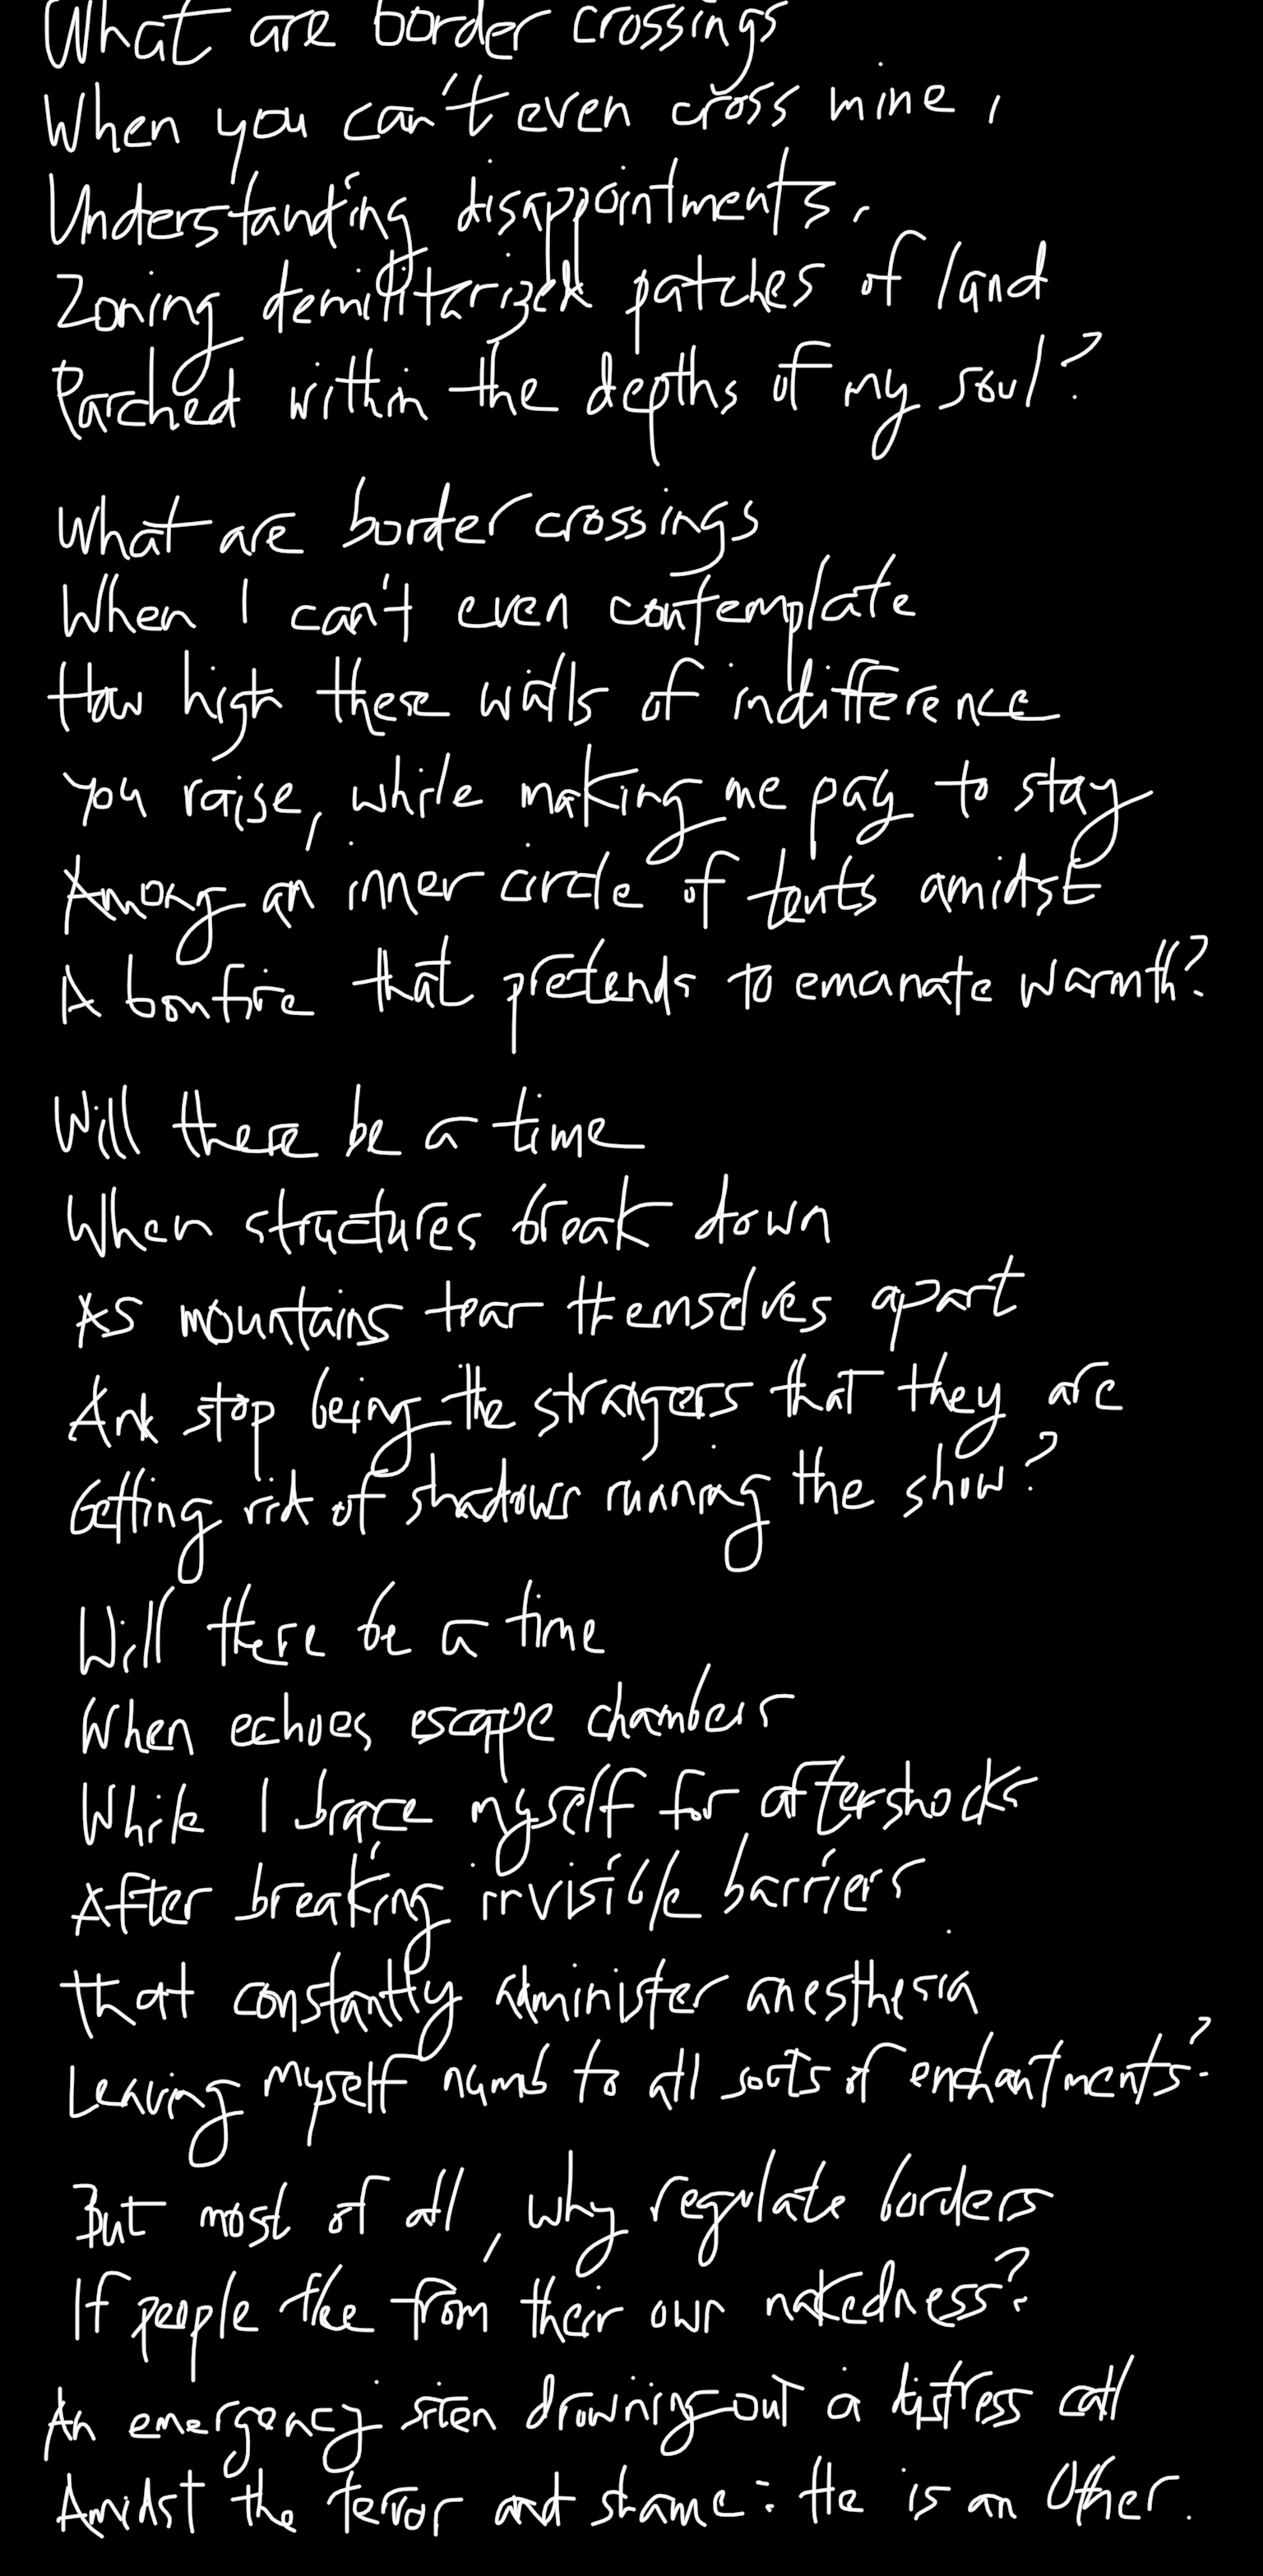 What are border crossings
When you can't even cross mine,
Understanding disappointments,
Zoning demilitarized patches of land
Parched within the depths of my soul?
What are border crossings
When I can't even contemplate
How high these walls of indifference
You raise, while making me pay to stay
Among an inner circle of tents amidst
A bonfire that pretends to emanate warmth?
Will there be a time
When structures break down
As mountains tear themselves apart
And stop being the strangers that they are
Getting rid of shadows running the show?
Will there be a time
When echoes escape chambers
While I brace myself for aftershocks
After breaking invisible barriers
That constantly administer anesthesia
Leaving myself numb to all sorts of enchantments?
But most of all, why regulate borders
If people flee from their own nakedness?
An emergency siren drowning out a distress call
Amidst the terror and shame: He is an Other.